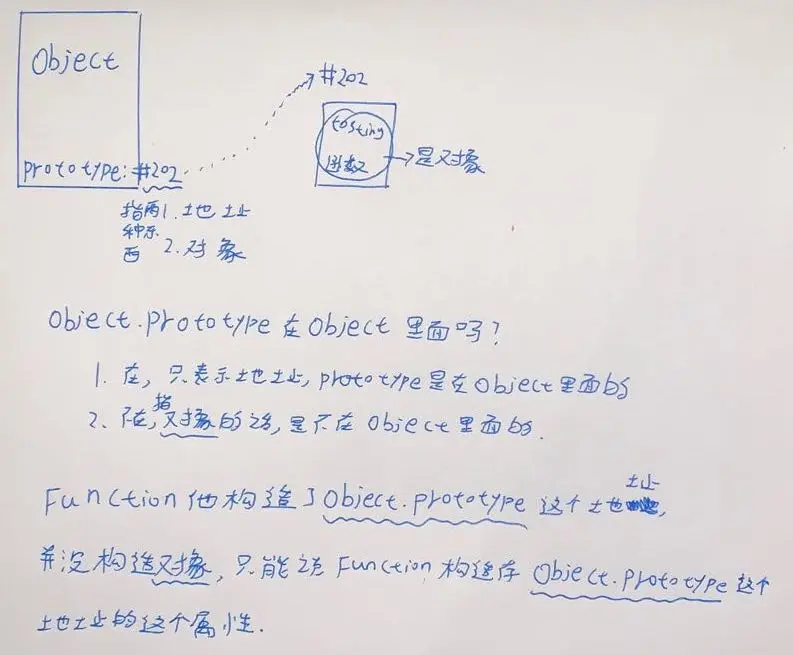 Object
#202
tosting
函数
是对象
prototype: #202
指两 1. 地址
种东
西 2. 对象
Object.prototype 在 Object 里面吗?
1. 在, 只表示地址, prototype是在Object里面的
2. 不在, 指对象的话, 是不在 Object 里面的.
Function 他构造了 Object.prototype 这个地址,
并没构造对象, 只能说 Function 构造存 Object.prototype 这个
地址的这个属性.